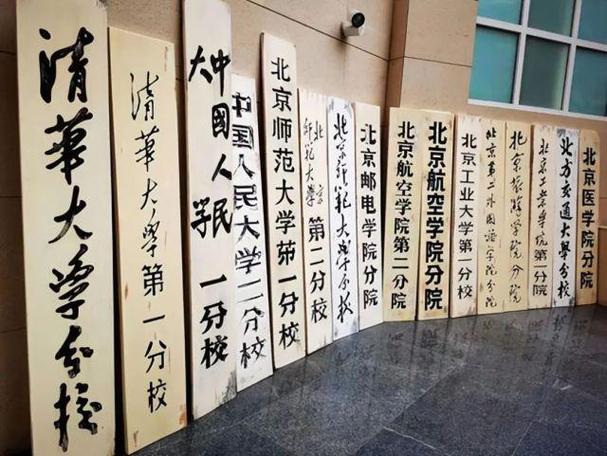 清華大学分校
清華大学第一分校
中國人民大学一分校
中国人民大学二分校
北京师范大学第一分校
北京师范大学第二分校
北京师范大学分校
北京邮电学院分院
北京航空学院第二分院
北京航空学院分院
北京工业大学第一分校
北京第二外国语学院分院
北京旅游学院分院
北方交通大學分校
北京医学院分院